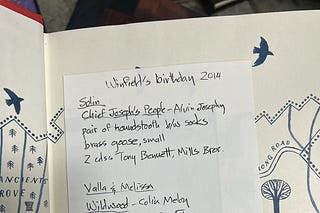 Winfield's birthday 2014
Solin
Chief Joseph's People - Alvin Josephy
pair of houndstooth b/w socks
brass goose, small
2 cds: Tony Bennett, Mills Bros.
Valla & Melissa
Wildwood - Colin Meloy
ANCIENTS
GROVE
LONG ROAD